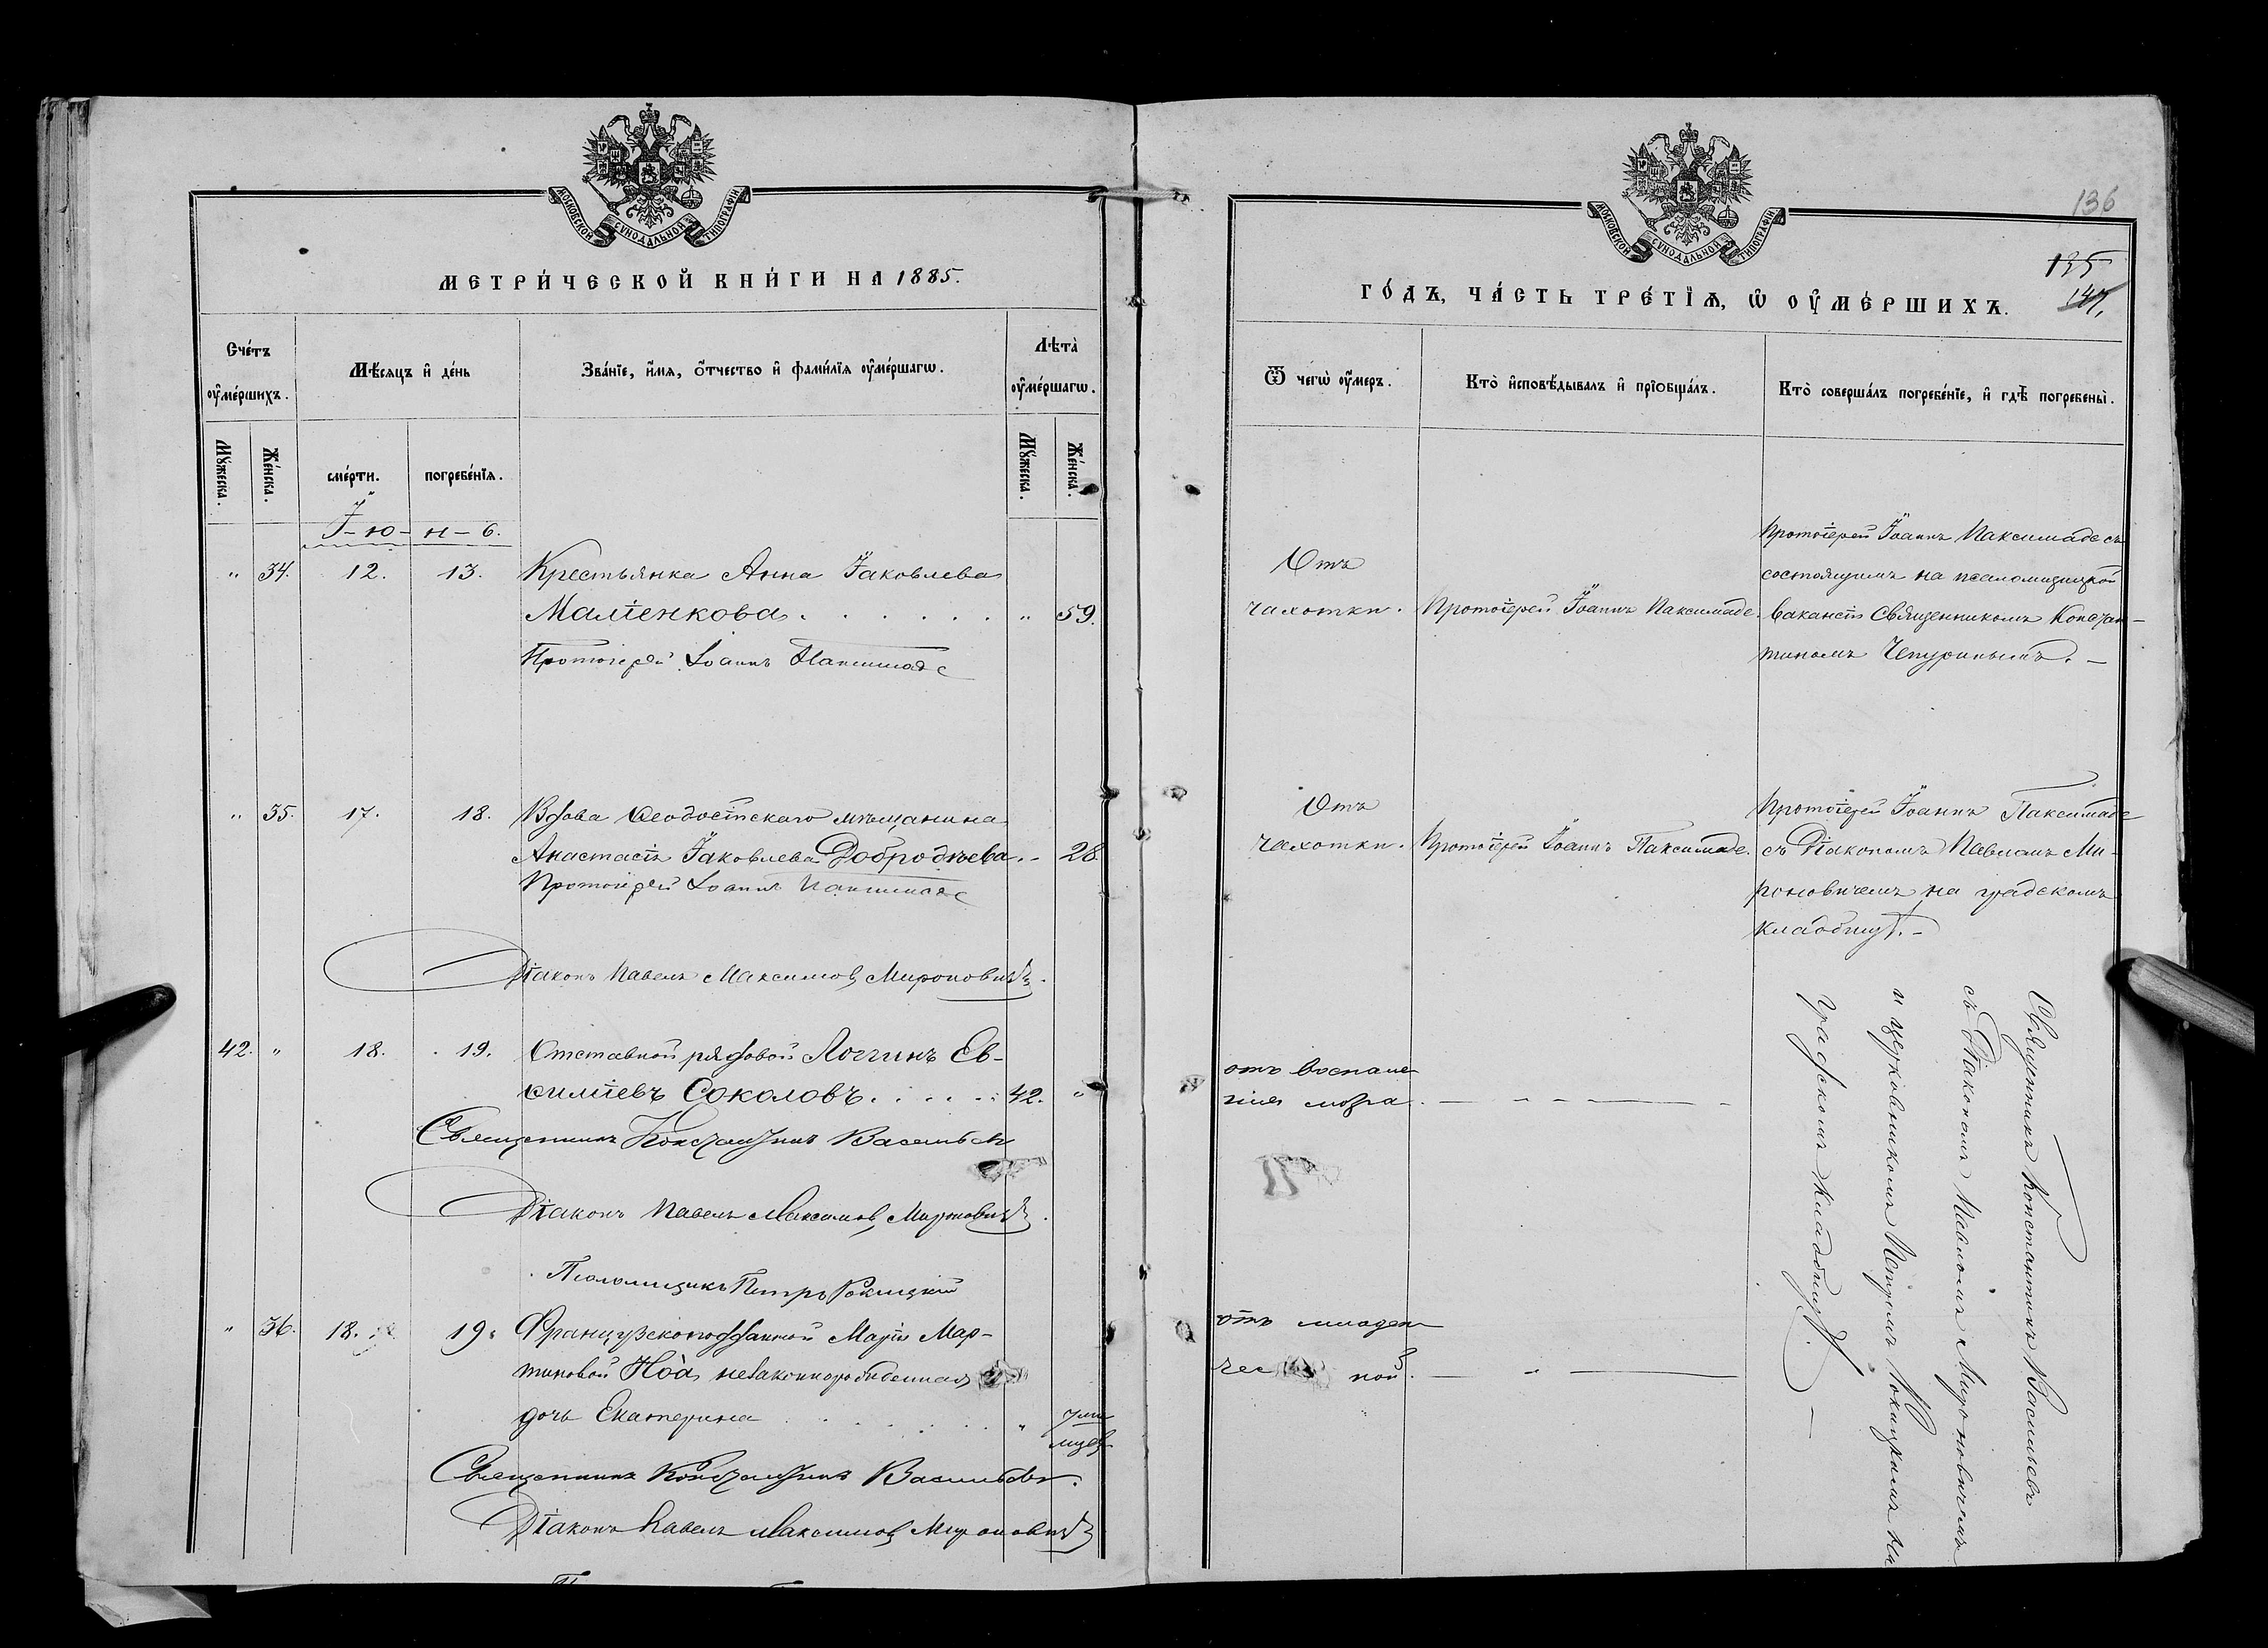 МОСКОВСКОЙ СѴНОДАЛЬНОЙ ТИПОГРАФІИ
МЕТРИ́ЧЕСКОЙ КНИ́ГИ НА 1885.
Сче́тъ оу҆ме́ршихъ.
Мѣ́сяцъ и҆ де́нь
Зва́нїе, и҆́мя, ѻ҆́тчество и҆ фами́лїя оу҆ме́ршагѡ.
Лѣта̀ оу҆ме́ршагѡ.
Мꙋ́жеска.
Же́нска.
сме́рти.
погребе́нїѧ.
Мꙋ́жеска.
Же́нска.
І-ю-н-ь.
" 34. 12. 13. Крестьянка Анна Іаковлева
Маліенкова . . . . . . " 59.
Протоіерей Іоаннъ Паксимаде
" 35. 17. 18. Вдова Ѳеодосійскаго мѣщанина
Анастасія Іаковлева Добродѣева. - 28.
Протоіерей Іоаннъ Паксимаде
Діаконъ Павелъ Максимовъ Мироновичъ.
42. " 18. 19. Отставной рядовой Логгинъ Ев-
силіевъ Соколовъ. . . . . 42. "
Священникъ Константинъ Васильев
Діаконъ Павелъ Максимовъ Мироновичъ.
Псаломщикъ Петръ Рокицкій
" 36. 18. 19. Французскоподданной Маріи Мар-
тиновой Нoà, незаконнорожденная
дочь Екатерина . . . . . . "
Священникъ Константинъ Васильев.
Діаконъ Павелъ Максимовъ Мироновичъ
МОСКОВСКОЙ СѴНОДАЛЬНОЙ ТИПОГРАФІИ
136
135
147.
ГО́ДЪ, ЧА́СТЬ ТРЕ́ТЇѦ, Ѡ҆ ОУ҆МЕ́РШИХЪ.
Ѿ чегѡ̀ оу҆́меръ.
Кто̀ и҆сповѣ́дывалъ и҆ прїобща́лъ.
Кто̀ соверша́лъ погребе́нїе, и҆ гдѣ̀ погребены̀.
Отъ
чахотки. Протоіерей Іоаннъ Паксимаде.
Протоіерей Іоаннъ Паксимаде съ
состоящимъ на псаломщицкой
вакансіи Священникомъ Констан-
тиномъ Чепуринымъ. -
Отъ
чахотки. Протоіерей Іоаннъ Паксимаде.
Протоіерей Іоаннъ Паксимаде
съ Діакономъ Павломъ Ми-
роновичемъ на градскомъ
кладбищѣ. -
отъ воспале
нія мозга.
отъ младен
чес ной.
Священникъ Константинъ Васильевъ
съ Діакономъ Павломъ Мироновичемъ
и церковникомъ Петромъ Рокицкимъ на
градскомъ кладбищѣ. -